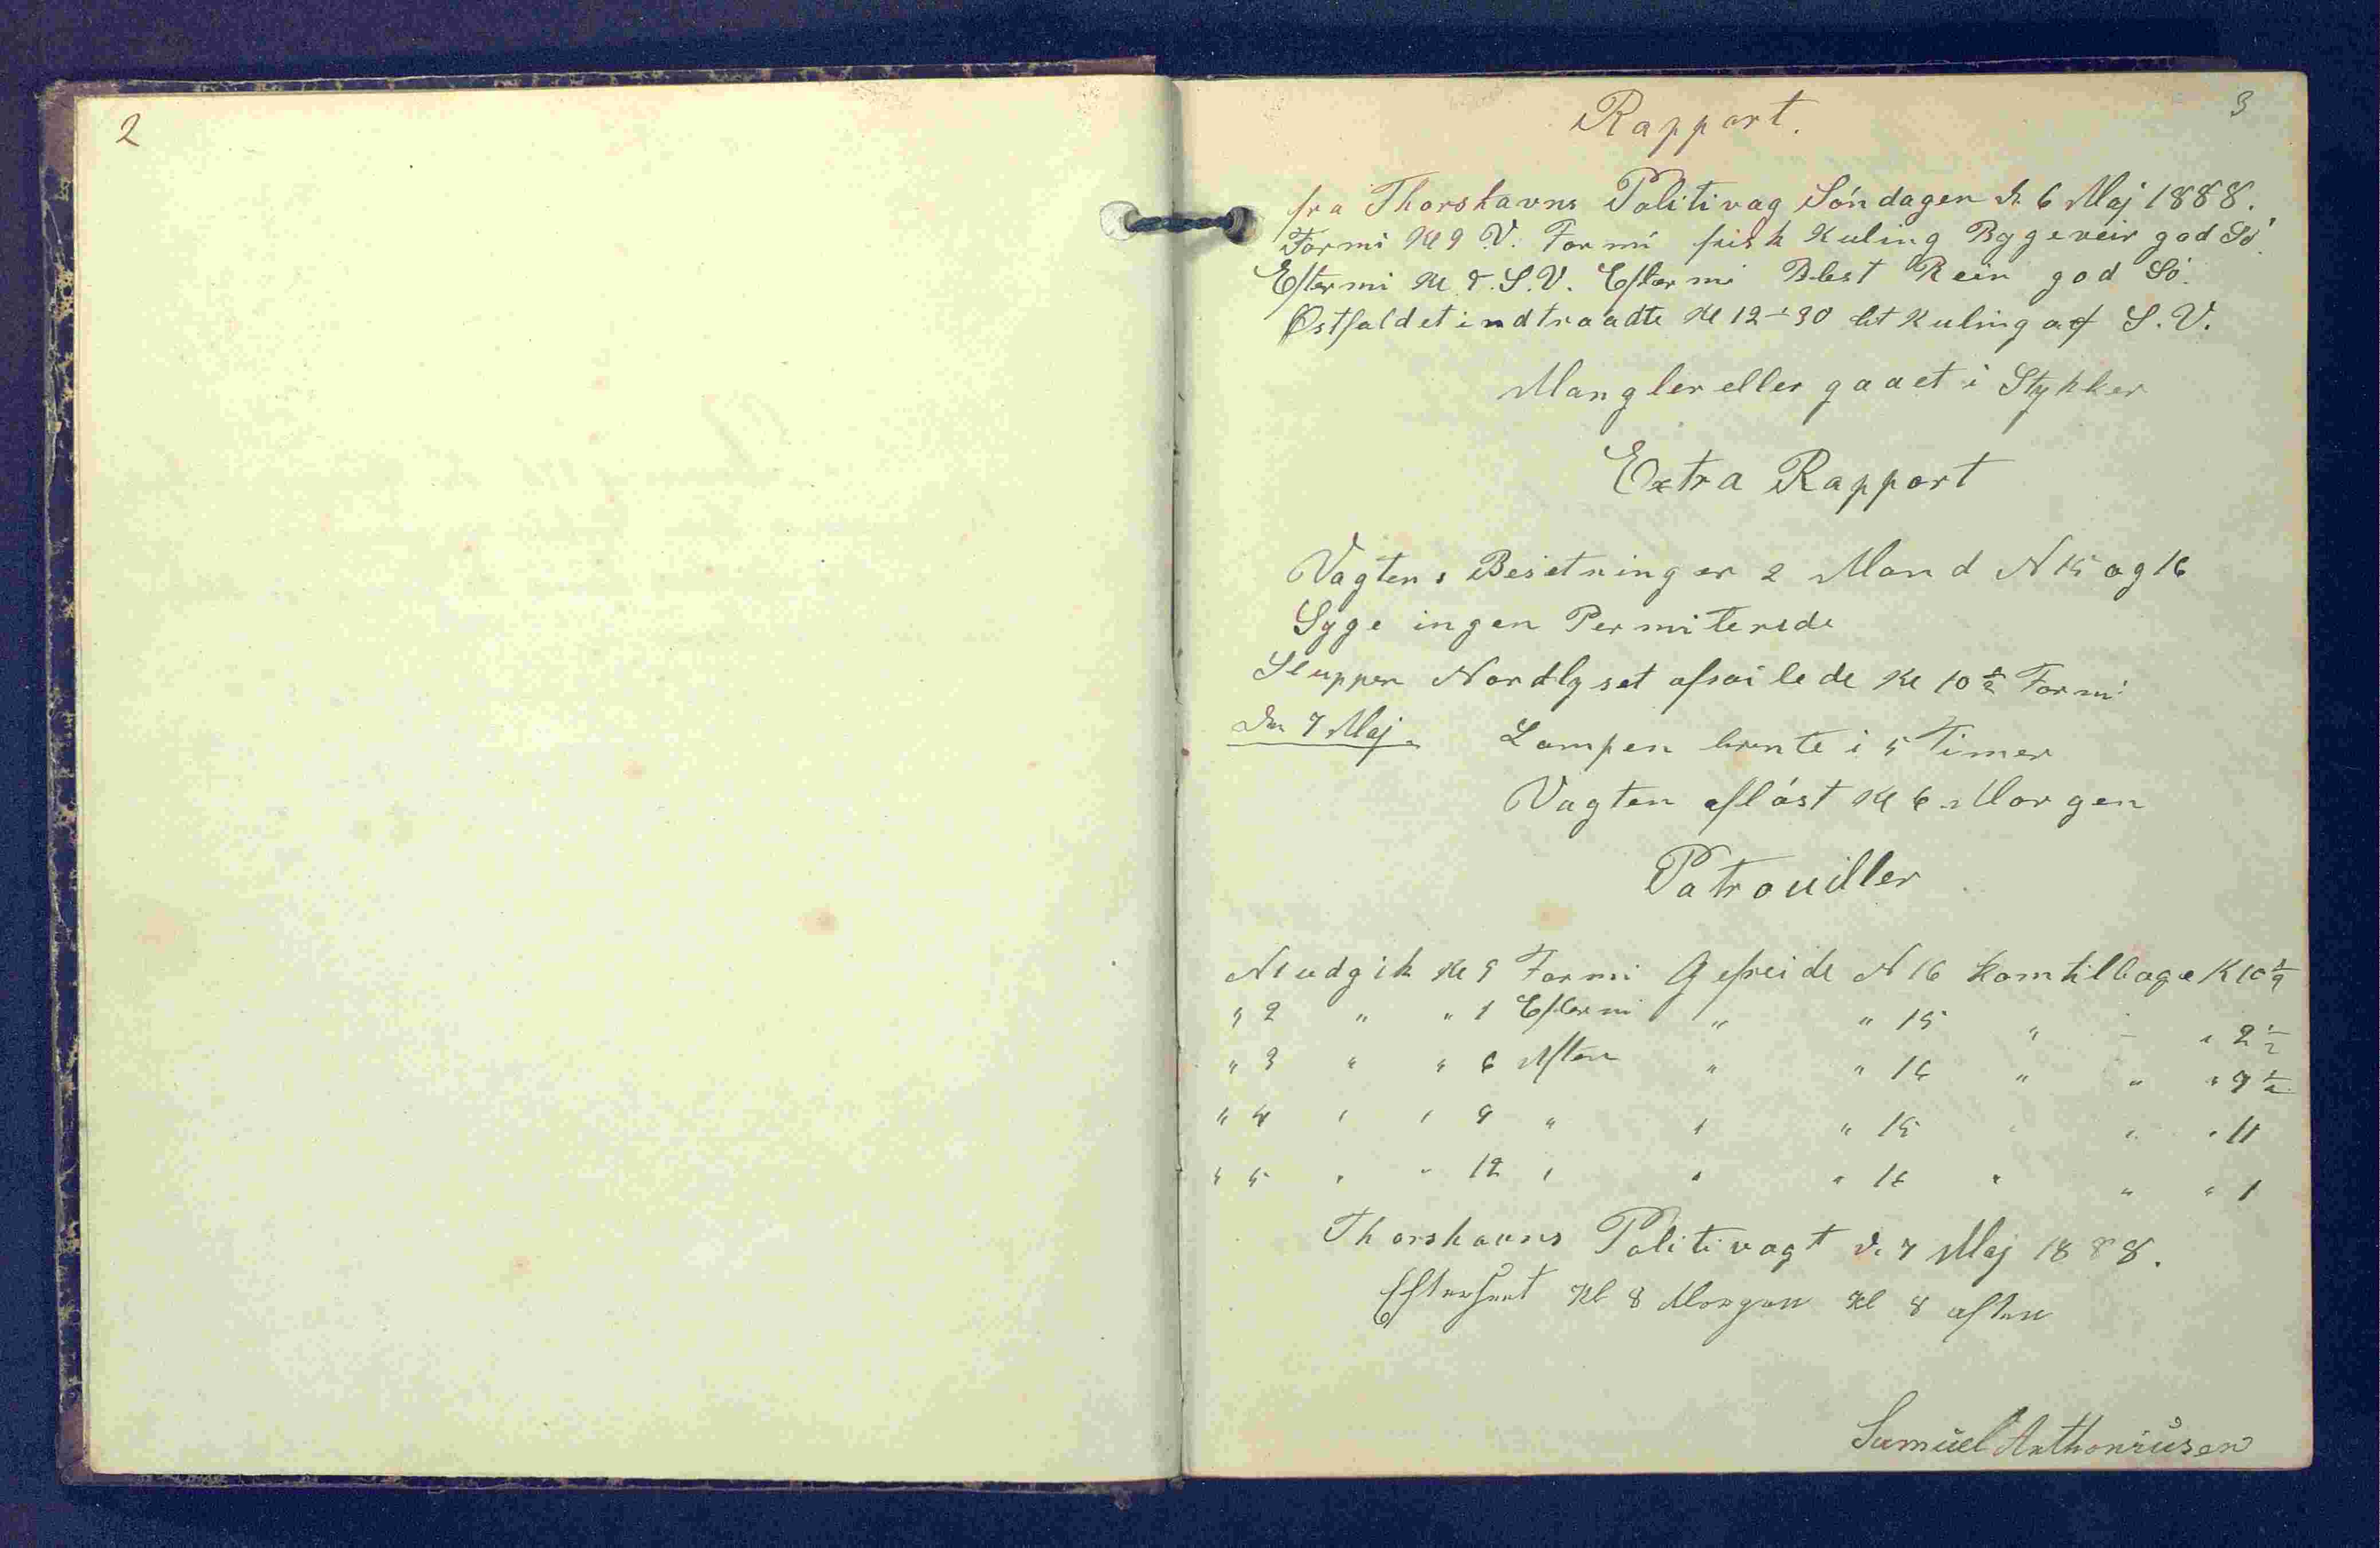 2
3
Rapport.
fra Thorshavns Politivag Söndagen d. 6 Maj 1888.
Formi Kl 9 V. Formi frisk Kuling Bygeveir god Sö.
Eftermi Kl 8. S.V. Eftermi Blest Rein god Sö.
Østfaldet indtraadte Kl 12-30 let Kuling af S.V.
Mangler eller gaaet i Stykker
Extra Rapport
Vagtens Besetning er 2 Mand N 15 og 16
Syge ingen Permiterede
Sluppen Nordlyset afseilede Kl 10 1/2 Formi
Den 7 Maj. Lampen brente i 5 Timer
Vagten aflöst Kl 6 Morgen
Patrouiller
N 1 udgik Kl 9 Formi Gefreide N 16 kom tilbage K 10 1/2
" 2 " " 1 Eftermi " " 15 " - " 2 1/2
" 3 " " 6 Aften " " 16 " " " 7 1/2
" 4 " " 9 " " " 15 " " " 11
" 5 " " 12 " " " 16 " " " 1
Thorshavns Politivagt d. 7 Maj 1888.
Efterseet Kl 8 Morgen Kl 8 aften
Samuel Anthoniusen